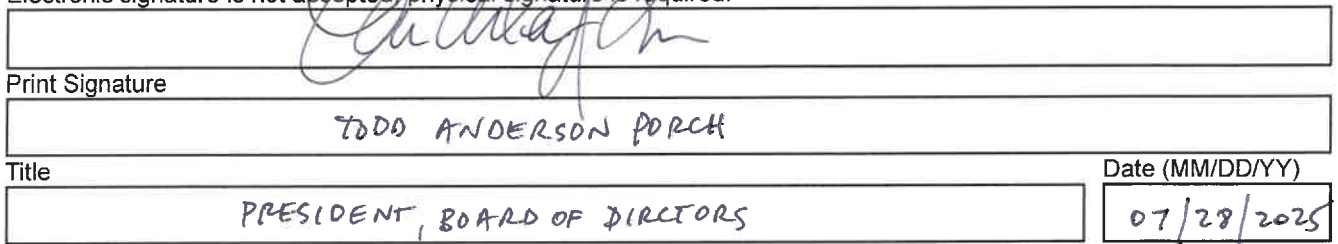 Electronic signature is not accepted, physical signature is required.
Print Signature
TODD ANDERSON PORCH
Title
Date (MM/DD/YY)
PRESIDENT, BOARD OF DIRCTORS
07/28/2025